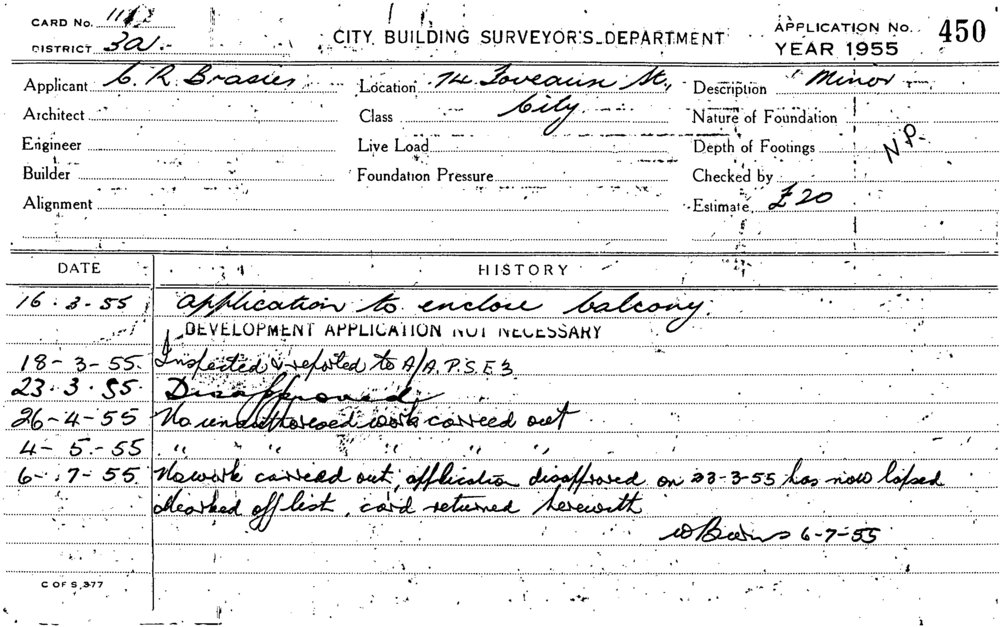 CARD No. 111
DISTRICT 3a.
CITY BUILDING SURVEYOR'S DEPARTMENT
APPLICATION No. 450
YEAR 1955
Applicant C. R. Brasier
Location 74 Foveaux St., City.
Description Minor
Architect
Class
Nature of Foundation
Engineer
Live Load
Depth of Footings
N.P.
Builder
Foundation Pressure
Checked by
Alignment
Estimate £20
DATE HISTORY
16.3-55 Application to enclose balcony.
DEVELOPMENT APPLICATION NOT NECESSARY
18-3-55. Inspected & reported to A/A.P.S.E 3
23.3.55 Disapproved
26-4-55 No unauthoresed work carreed out
4-5-55 " " " " "
6-7-55 No work carreed out, application disapproved on 23-3-55 has now lapsed
Marked off list, card returned herewith
6-7-55
C OF S. 377